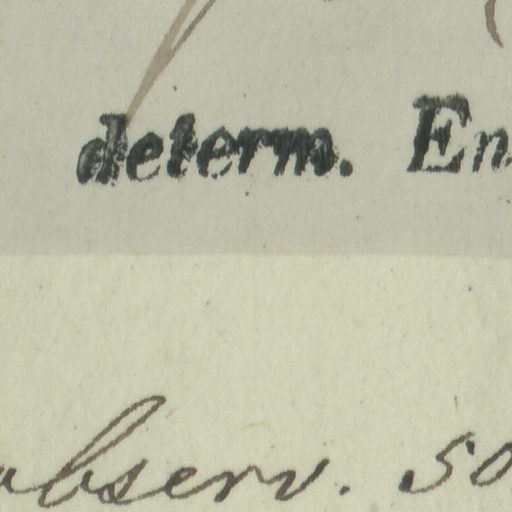 determ. En
observ. so